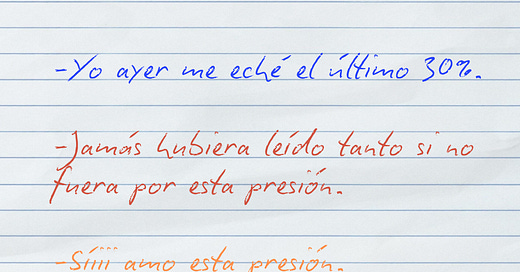 -Yo ayer me eché el último 30%.
-Jamás hubiera leído tanto si no
fuera por esta presión.
-Síííí amo esta presión.